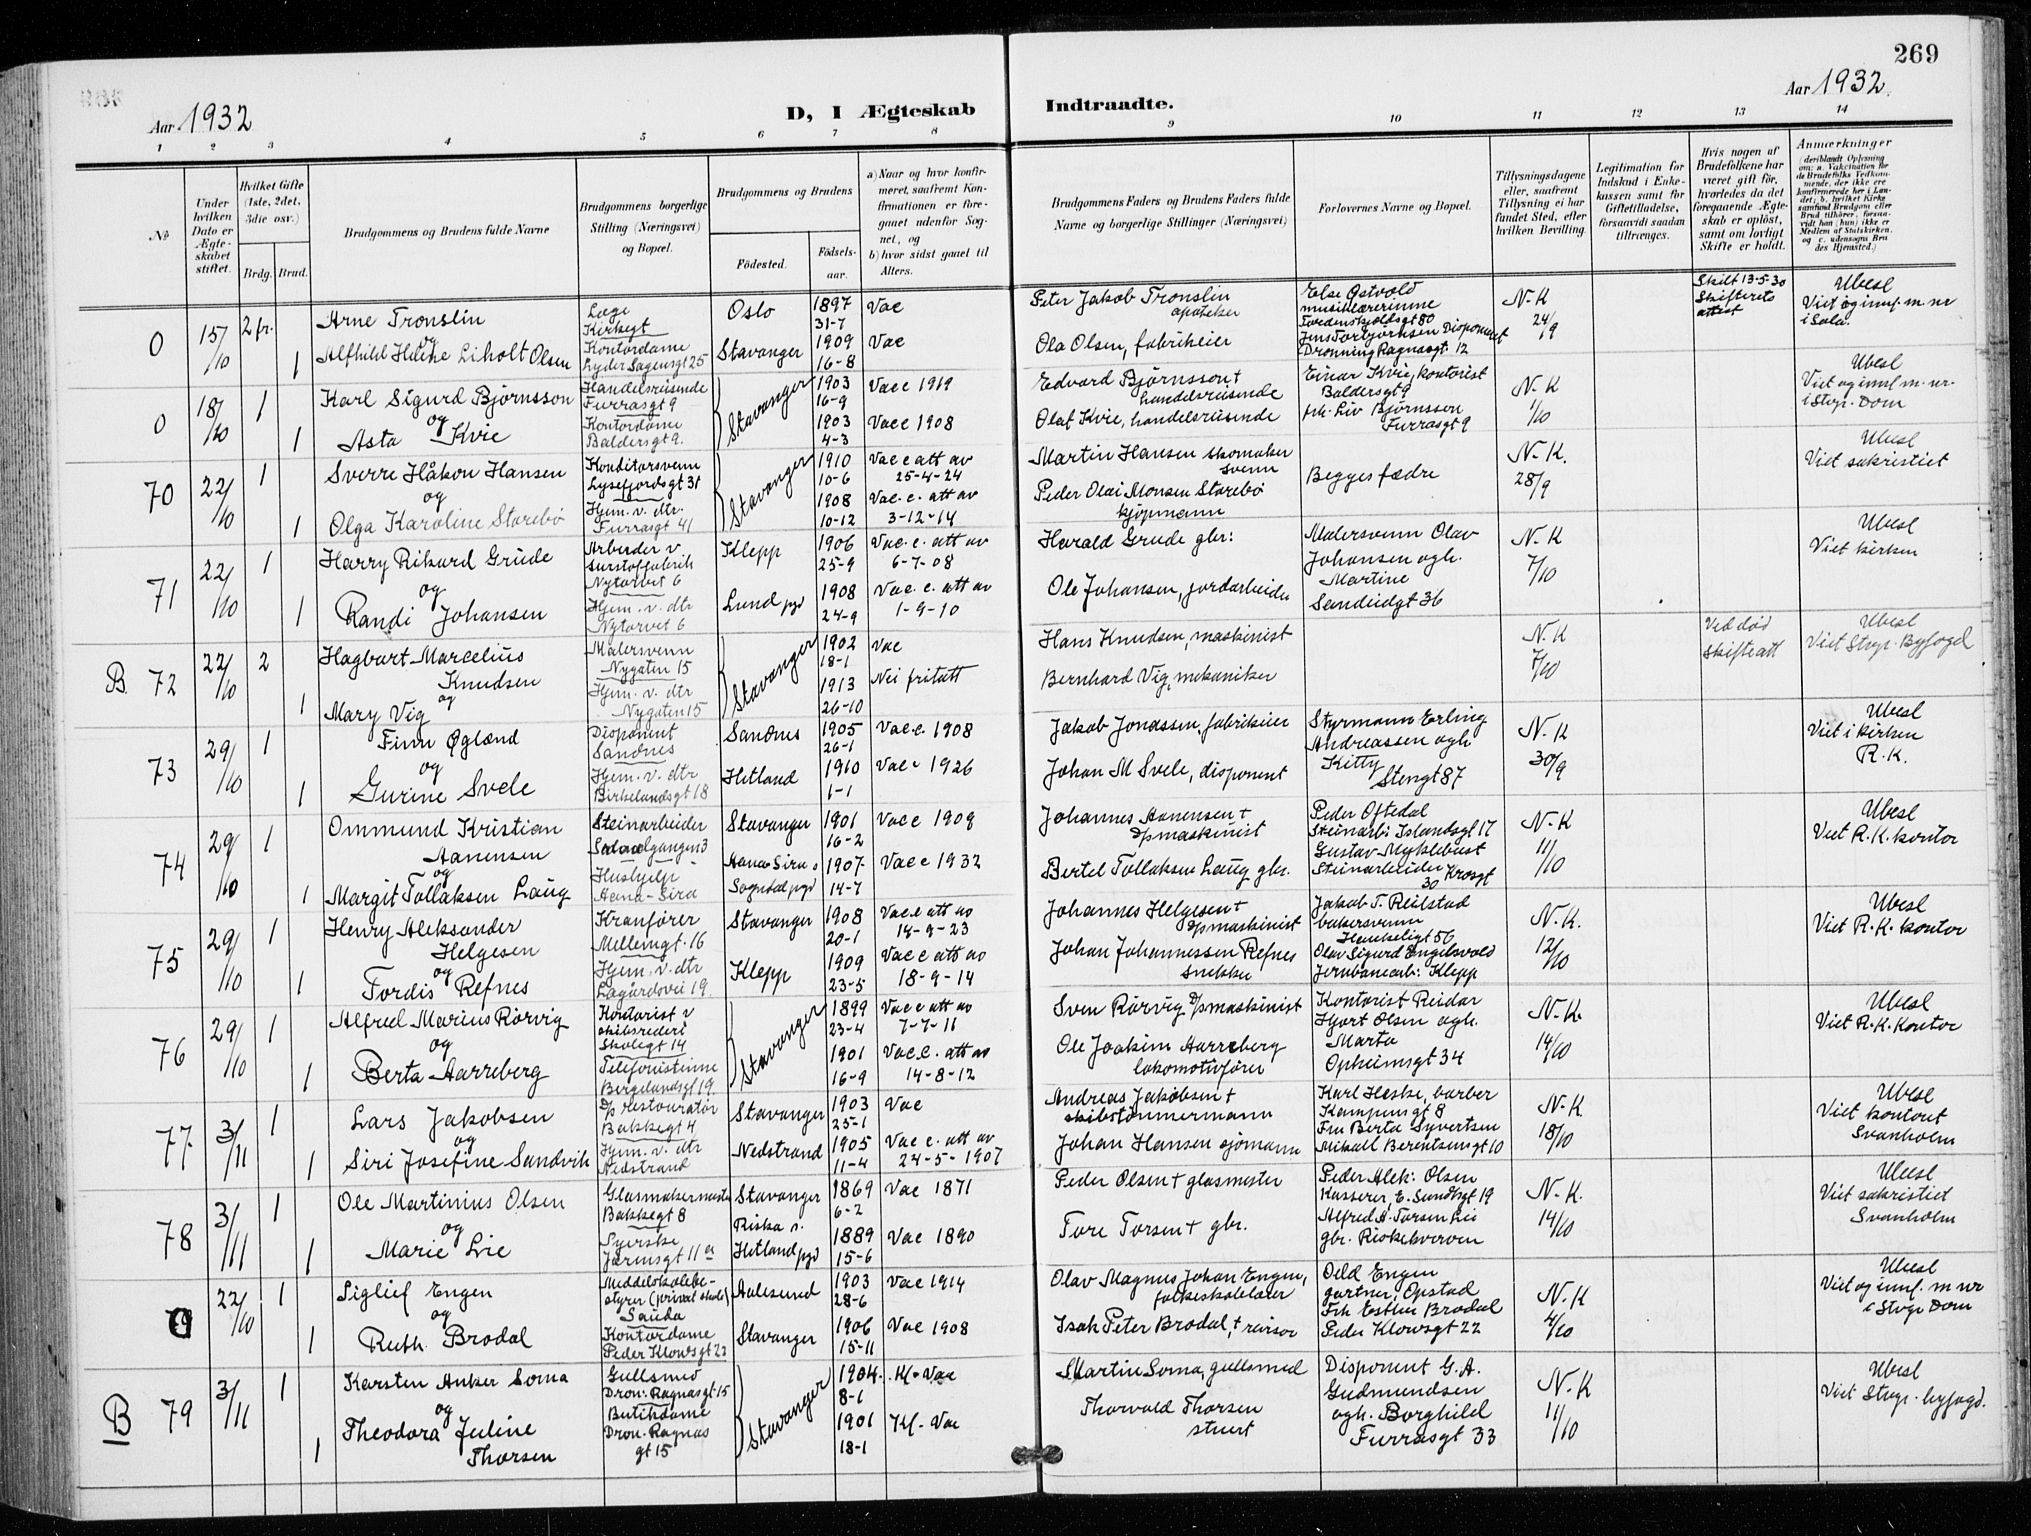 269
Aar 1932
D, I Ægteskab Indtraadte.
Aar 1932.
1 2 3 4 5 6 7 8 9 10 11 12 13 14
No
Under hvilken Dato er Ægteskabet stiftet.
Hvilket Gifte (1ste, 2det, 3die osv.)
Brdg. Brud.
Brudgommens og Brudens fulde Navne
Brudgommens borgerlige Stilling (Næringsvei) og Bopæl.
Brudgommens og Brudens
Födested. Födselsaar.
a) Naar og hvor konfirmeret, saafremt Konfirmationen er foregaaet udenfor Sognet, og
b) hvor sidst gaaet til Alters.
Brudgommens Faders og Brudens Faders fulde Navne og borgerlige Stillinger (Næringsvei)
Forlovernes Navne og Bopæl.
Tillysningsdagene eller, saafremt Tillysning ei har fundet Sted, efter hvilken Bevilling.
Legitimation for Indskud i Enkekassen samt for Giftetilladelse, forsaavidt saadan tiltrænges.
Hvis nogen af Brudefolkene har været gift før, hvorledes da det foregaaende Ægteskab er opløst, samt om lovligt Skifte er holdt.
Anmærkninger
0 15/10 2 fr. Arne Tronslin Læge Kirkegt Oslo 1897 31-7 Vac
og
1 Alfhild Helene Liholt Olsen Kontordame Lyder Sagensgt 25 Stavanger 1909 16-8 Vac
Peter Jakob Tronslin apoteker
Ola Olsen, fabrikeier
Else Østvold musiklærerinne Tordenskjoldsgt 80
Jens Torbjørnsen Disponent Dronning Ragnasgt. 12
N-K 24/9
Skilt 13-5-30 Skifterets attest
Ubesl Viet og innf. m. nr i Sola.
0 18/10 1 Karl Sigurd Bjørnsson Handelsreisende Furrasgt 9 Stavanger 1903 16-9 Vacc 1919
og
1 Asta Kvie Kontordame Baldersgt 9. 1903 4-3 Vacc 1908
Edvard Bjørnsson + handelsreisende
Olaf Kvie, handelsreisende
Einar Kvie, kontorist Baldersgt 9
frk. Liv Bjørnsson Furrasgt 9
N-K 1/10
Ubesl Viet og innf. m. nr. i Stvgr. Dom
70 22/10 1 Sverre Håkon Hansen Konditorsvenn Lysefjordsgt 31 Stavanger 1910 10-6 Vacc att av 25-4-24
og
1 Olga Karoline Starebø Hjem. v. dtr. Furrasgt 41 1908 10-12 Vac. c. att av 3-12-14
Martin Hansen skomaker svenn
Peder Olai Monsen Starebø kjøpmann
Begges fædre
N-K. 28/9
Ubesl Viet sakristiet
71 22/10 1 Harry Rikard Grude Arbeider v. Surstoffabrik Nytorvet 6 Klepp 1906 25-9 Vac. c. att av 6-7-08
og
1 Randi Johansen Hjem. v. dtr Nytorvet 6 Lund pgd 1908 24-9 Vac. c. att av 1-9-10
Harald Grude gbr:
Ole Johansen, jordarbeider
Malersvenn Olav Johansen ogh. Martine Sandeidgt 36
N-K 7/10
Ubesl Viet kirken
B. 72 22/10 2 Hagbart Marcelius Knudsen Malersvenn Nygaten 15 Stavanger 1902 18-1 Vac
og
1 Mary Vig Hjem. v. dtr Nygaten 15 1913 26-10 Nei fritatt
Hans Knudsen, maskinist
Bernhard Vig, mekaniker
N-K 7/10
Ved død skifteatt
Ubesl Viet Stvgr. Byfogd
73 29/10 1 Finn Øglænd Disponent Sandnes Sandnes 1905 26-1 Vacc. 1908
og
1 Gurine Svele Hjem. v. dtr Birkelandsgt 18 Hetland 1910 1-1 Vacc 1926
Jakob Jonassen, fabrikeier
Johan M Svele, disponent
Styrmann Erling Andreassen ogh Kitty Stengt 87
N-K 30/9
Ubesl Viet i kirken R.K.
74 29/10 1 Ommund Kristian Aanensen Steinarbeider Stavanger 1901 16-2 Vacc 1909
og
1 Margit Tollaksen Laug Hushjelp Aana-Sira Aana-Sira Sogndal pgd 1907 14-7 Vacc 1932
Johannes Aanensen + D/s maskinist
Bertel Tollaksen Laug gbr.
Peder Oftedal Steinarb: Islandsgt 17
Gustav Myklebust Steinarbeider 30 Krosgt
N-K 11/10
Ubesl Viet R.K. kontor
75 29/10 1 Henry Aleksander Helgesen Kranfører Mellemgt. 16 Stavanger 1908 20-1 Vacc att av 14-9-23
og
1 Tordis Refnes Hjem. v. dtr Lagårdsvei 19 Klepp 1909 23-5 Vacc att av 18-9-14
Johannes Helgesen + D/s maskinist
Johan Johannessen Refnes snekker
Jakob T. Reilstad bakersvenn 56
Olav Sigurd Engelsvold Jernbanearb: Klepp
N-K. 12/10
Ubesl Viet R.K. kontor
76 29/10 1 Alfred Marius Rörvig Kontorist v skibsrederi Skolegt 14 Stavanger 1899 23-4 Vacc att av 7-7-11
og
1 Berta Aarreberg Telefonistinne Bergelandsgt 19. 1901 16-9 Vac.c. att av 14-8-12
Sven Rørvig D/s maskinist
Ole Joakim Aarreberg lokomotivfører
Kontorist Reidar Hjort Olsen ogh. Marta Opheimsgt 34
N-K. 14/10
Ubesl Viet R.K. kontor
77 3/11 1 Lars Jakobsen D/s restauratør Bakkegt 4 Stavanger 1903 25-1 Vac
og
1 Siri Josefine Sandvik Hjem. v. dtr Nedstrand Nedstrand 1905 11-4 Vac c. att av 24-5-1907
Andreas Jakobsen + skibstømmermann
Johan Hansen sjömann
Karl Heske, barber Kampensgt 8
Fru Berta Syvertsen Mikall Berentsensgt 10
N-K. 18/10
Ubesl Viet kontoret Svanholm
78 3/11 1 Ole Martinius Olsen Glasmakermester Bakkegt 8 Stavanger 1869 6-2 Vac 1871
og
1 Marie Lie Syerske Jærensgt 11a Riska s. Hetland pgd 1889 15-6 Vac 1890
Peder Olsen + glasmester
Tore Torsen + gbr.
Peder Alek: Olsen Kasserer, E. Sundtsgt 19
Alfred A. Torsen Lie gbr.
N-K. 14/10
Ubesl Viet sakristiet Svanholm
0 22/10 1 Sigleif Engen Middelskolebestyrer (privat skole) Sauda Aalesund 1903 28-6 Vac 1914
og
1 Ruth Brodal Kontordame Peder Klowsgt 22 Stavanger 1906 15-11 Vac 1908
Olav Magnus Johan Engen, folkeskolelærer
Isak Peter Brodal, + revisor
Odd Engen gartner, Opstad
Frk Esther Brodal Peder Klowsgt 22
N-K 4/10
Ubesl Viet og innf. m nr i Stvgr Dom
B 79 3/11 1 Karsten Anker Soma Gullsmed Dron. Ragnasgt 15 Stavanger 1904. 8-1 Kf. Vac
og
1 Theodora Juline Thorsen Butikdame Dron. Ragnas gt 15 1901 18-1 Kf. Vac
Martin Soma, gullsmed
Thorvald Thorsen stuert
Disponent G. A. Gudmundsen ogh. Borghild Furrasgt 33
N-K 11/10
Ubesl Viet Stvgr. byfogd.